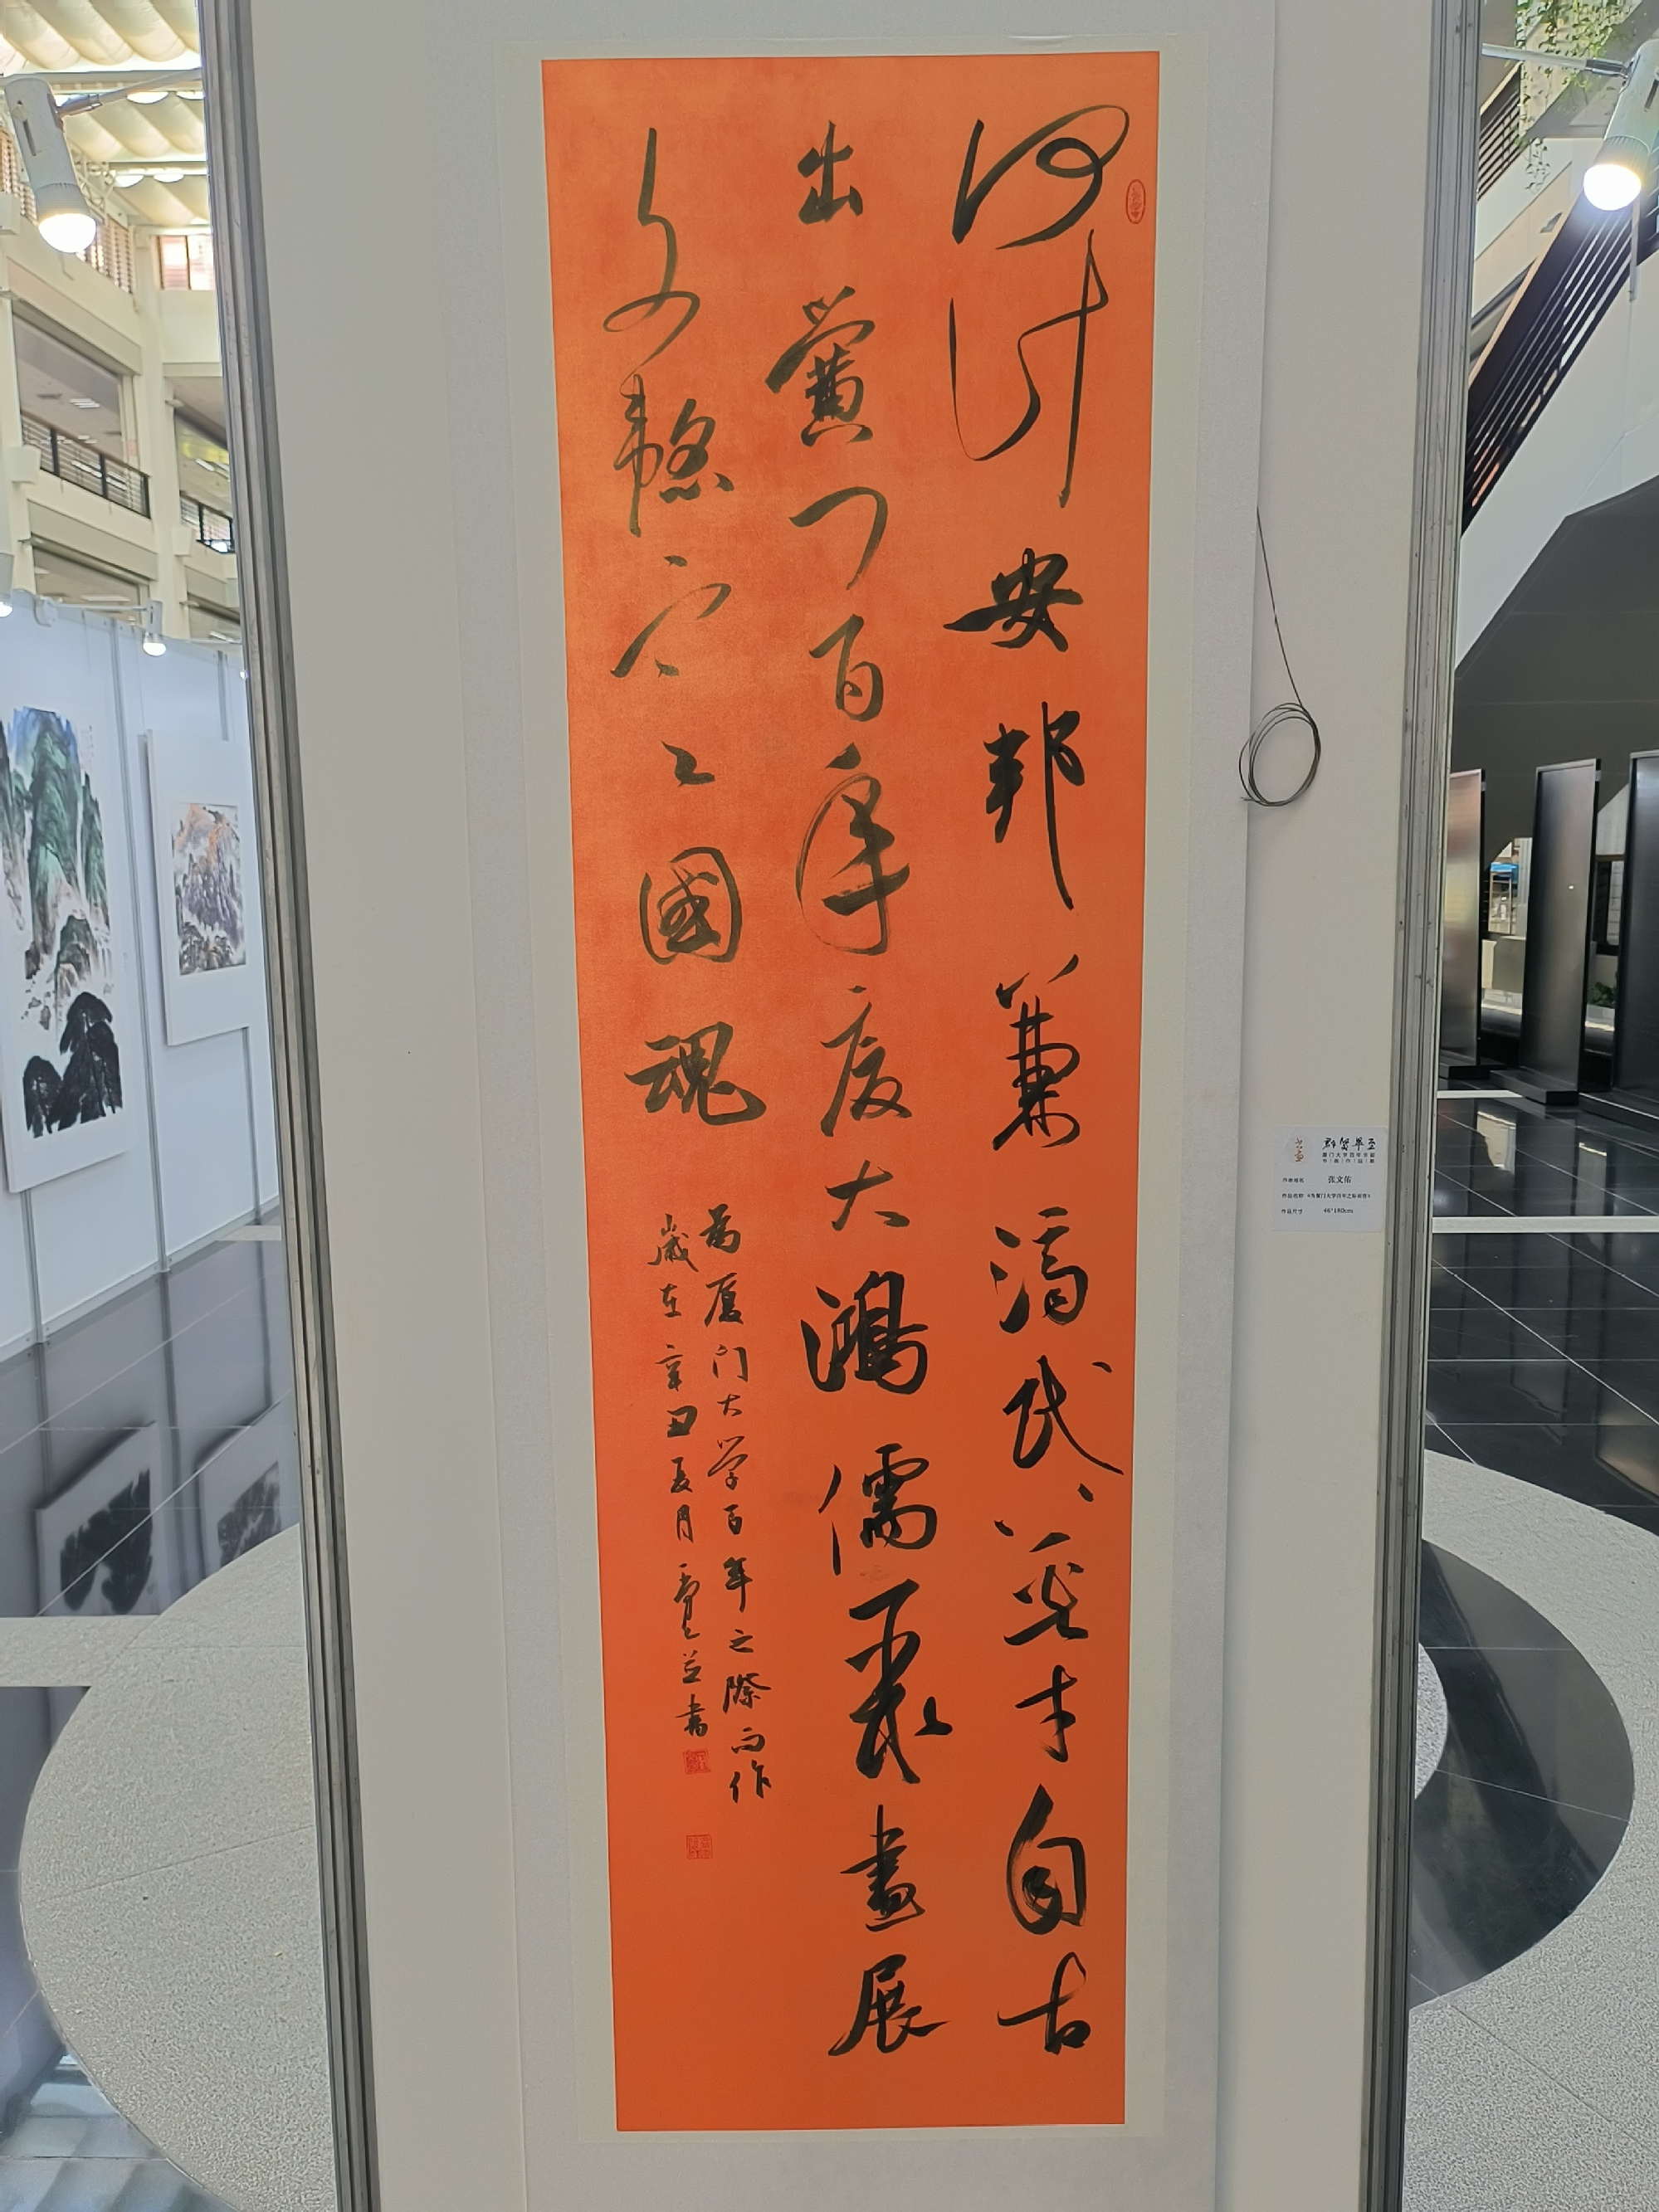 何计安邦兼济民英才自古
出黉门百年厦大鸿儒聚畫展
文國魂
為厦门大学百年之際而作
歲在辛丑夏月並書
群贤毕至
厦门大学百年华诞
书画作品展
作者姓名 张文佑
作品名称 《为厦门大学百年之际而作》
作品尺寸 46*180cm